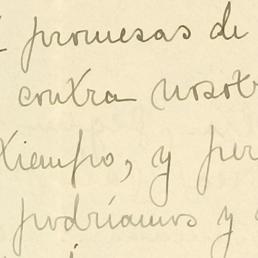 promesas de
contra nosot
tiempo, y per
podríamos y